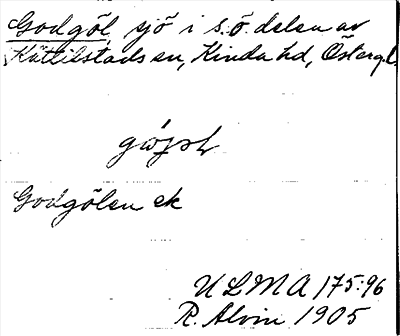 Godgöl, sjö i s.ö. delen av
Kättilstads sn, Kinda hd, Österg.l.
Godgölen ek
ULMA 175:96
R. Alvin 1905